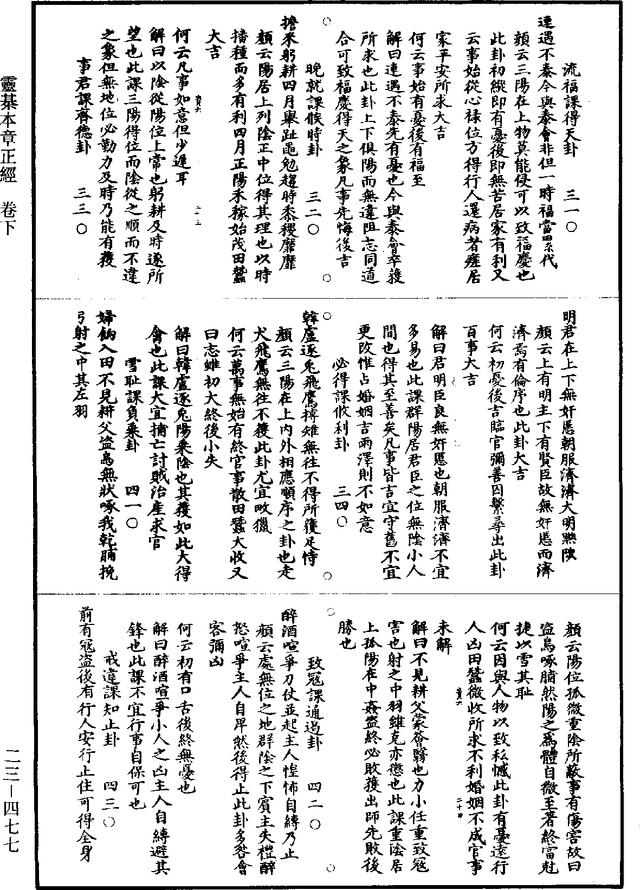 流福課得天卦　三一〇
連遇不泰今與泰會非但一時福當累代
顏云三陽在上物莫能侵可以致福慶也
此卦初縱即有憂後即無苦居家有利又
云事始從心祿位方得行人還病者瘥居
家平安所求大吉
何云事始有憂後有福至
解曰連遇不泰先有憂也今與泰會卒獲
所求也此卦上下俱陽而無違阻志同道
合可致福慶得天之象凡事先悔後吉
晚就課候時卦　三二〇
擔來躬耕四月舉趾黽勉趨時黍稷靡靡
顏云陽居上列陰正中位得其理也以時
播種而多有利四月正陽禾稼始茂田蠶
大吉
何云凡事如意但少遲耳
解曰以陰從陽位上常也躬耕及時遂所
望也此課三陽得位而陰從之順而不違
之象但無地位必勤力及時乃能有獲
事君課齊德卦　三三〇
明君在上下無奸慝朝服濟濟大明黜陟
顏云上有明主下有賢臣故無奸慝而濟
濟焉有倫序也此卦大吉
何云初憂後吉臨官彌善囚繫尋出此卦
百事大吉
解曰君明臣良無奸慝也朝服濟濟不宜
多易也此課群陽居君臣之位無陰小人
間也得其至善矣凡事皆吉宜守舊不宜
更改惟占婚姻吉雨澤則不如意
必得課攸利卦　三四〇
韓盧逐兔飛鷹搏雉無往不得所獲足恃
顏云三陽在上內外相應順序之卦也走
犬飛鷹無往不獲此卦尤宜畋獵
何云萬事無始有終官事散田蠶大收又
曰志雖初大終後小失
解曰韓盧逐兔陽乘陰也其獲如此大得
會也此課大宜捕亡討賊治產求官
雪恥課負乘卦　四一〇
婦餉入田不見耕父盜烏無狀啄我乾脯挽
弓射之中其左羽
顏云陽位孤微重陰所蔽事有傷害故曰
盜烏啄脯然陽之為體自微至著終當尅
捷以雪其恥
何云因與人物以致私憾此卦有憂遠行
人凶田蠶微收所求不利婚姻不成官事
未解
解曰不見耕父蒙會醫也力小任重致寇
害也射之中羽雖克亦憊也此課重陰居
上孤陽在中姦盜終必敗獲出師先敗後
勝也
致寇課通遇卦　四二〇
醉酒喧爭刀仗並起主人惶怖自縛乃止
顏云處無位之地群陰之下賓主失禮醉
怒喧爭主人自卑然後得止此卦多咎會
客彌凶
何云初有口舌後終無憂也
解曰醉酒喧爭小人之凶主人自縛避其
鋒也此課不宜行事自保可也
戒違課知止卦　四三〇
前有寇盜後有行人安行止住可得全身
靈棊本章正經　卷下
二三—四七七